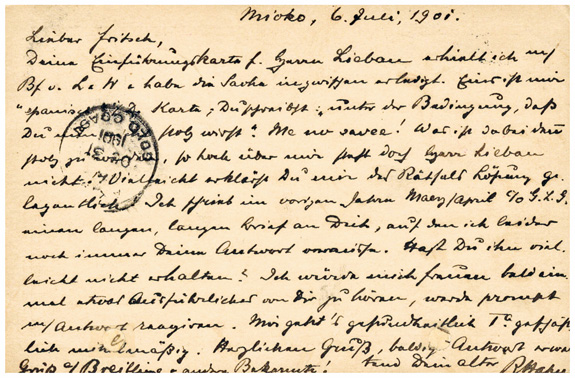 Mioko, 6. Juli, 1901.
Lieber Fritsch,
Deine Einführungskarte f. Herrn Liebau erhielt ich m/
Bf v. L & H & habe die Sache inzwischen erledigt. Eins ist mir
"spanisch" Karte; Du schreibst: "unter der Bedingung, daß
Du nun stolz wirst"? Me no savee! Was ist dabei denn
stolz zu , so hoch über mir steht doch Herr Liebau
nicht! Vielleicht erklärst Du mir des Rätsels Lösung ge-
legentlich. Ich schrieb im vorigen Jahre März/April c/o G.L.G.
einen langen, langen Brief an Dich, auf den ich leider
noch immer Deine Antwort vermisse. Hast Du ihn viel-
leicht nicht erhalten? Ich würde mich freuen bald ein-
mal etwas Ausführlicher von Dir zu hören, werde prompt
m/ Antwort reagiren. Mir geht's gesundheitlich 1a geschäft-
lich mittelmäßig. Herzlichen Gruß, baldige Antwort
Gruß a/ & andere Bekannte! Dein alter
ROAD COAST
1901
31